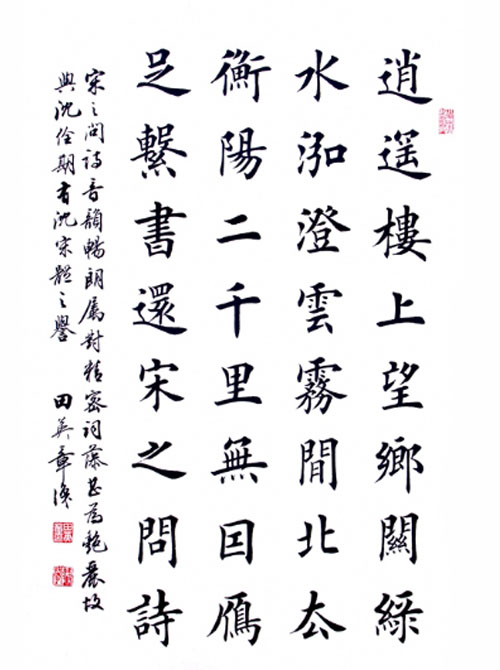 逍遥樓上望鄉關緑
水泓澄雲霧間北厺
衡陽二千里無囙鴈
足繫書還宋之問詩
宋之问詩音韻暢朗属對精密词藻甚为艷麗故
與沈佺期有沈宋體之譽 田英章